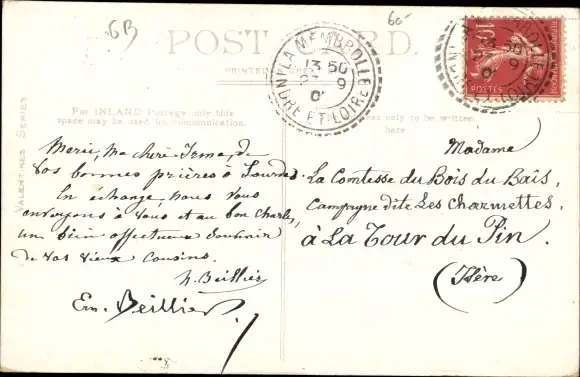 6B
60
POST CARD.
PRINTED
LA MEMBROLLE
13 50
9
INDRE ET LOIRE
10
POSTES
VALENTINES SERIES
For INLAND Postage only this
space may be used for communication.
only to be written
here
Merci, ma chère Irma, de
vos bonnes prières à Lourdes.
En échange, nous vous
envoyons à vous et au bon Charles,
un bien affectueux souvenir
de vos vieux cousins.
Beillier
Em. Beillier
Madame
La Comtesse du Bois du Baîs,
Campagne dite Les Charmettes.
à La Tour du Pin.
(Isère)